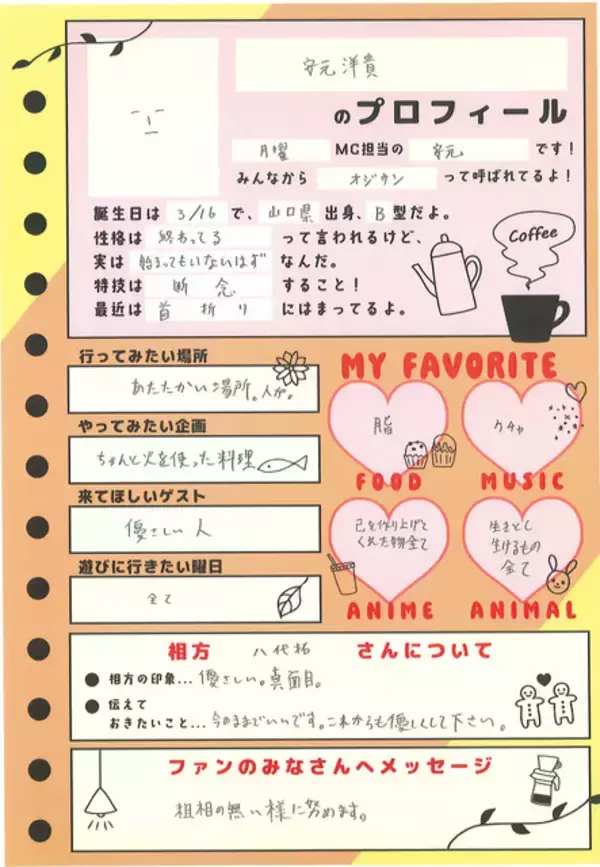 安元 洋貴
のプロフィール
月曜 MC担当の 安元 です！
みんなから オジサン って呼ばれてるよ！
誕生日は 3/16 で、山口県 出身、B 型だよ。
性格は 終わってる って言われるけど、
実は 始まってもいないはず なんだ。
特技は 断念 すること！
最近は 首折り にはまってるよ。
Coffee
行ってみたい場所
あたたかい場所。人が。
やってみたい企画
ちゃんと火を使った料理
来てほしいゲスト
優さしい人
遊びに行きたい曜日
全て
MY FAVORITE
脂
FOOD
ケチャ
MUSIC
己を作り上げて
くれた物全て
ANIME
生きとし
生けるもの
全て
ANIMAL
相方 八代拓 さんについて
● 相方の印象... 優さしい。真面目。
● 伝えて
おきたいこと... 今のままでいいです。これからも優しくして下さい。
ファンのみなさんへメッセージ
粗相の無い様に努めます。